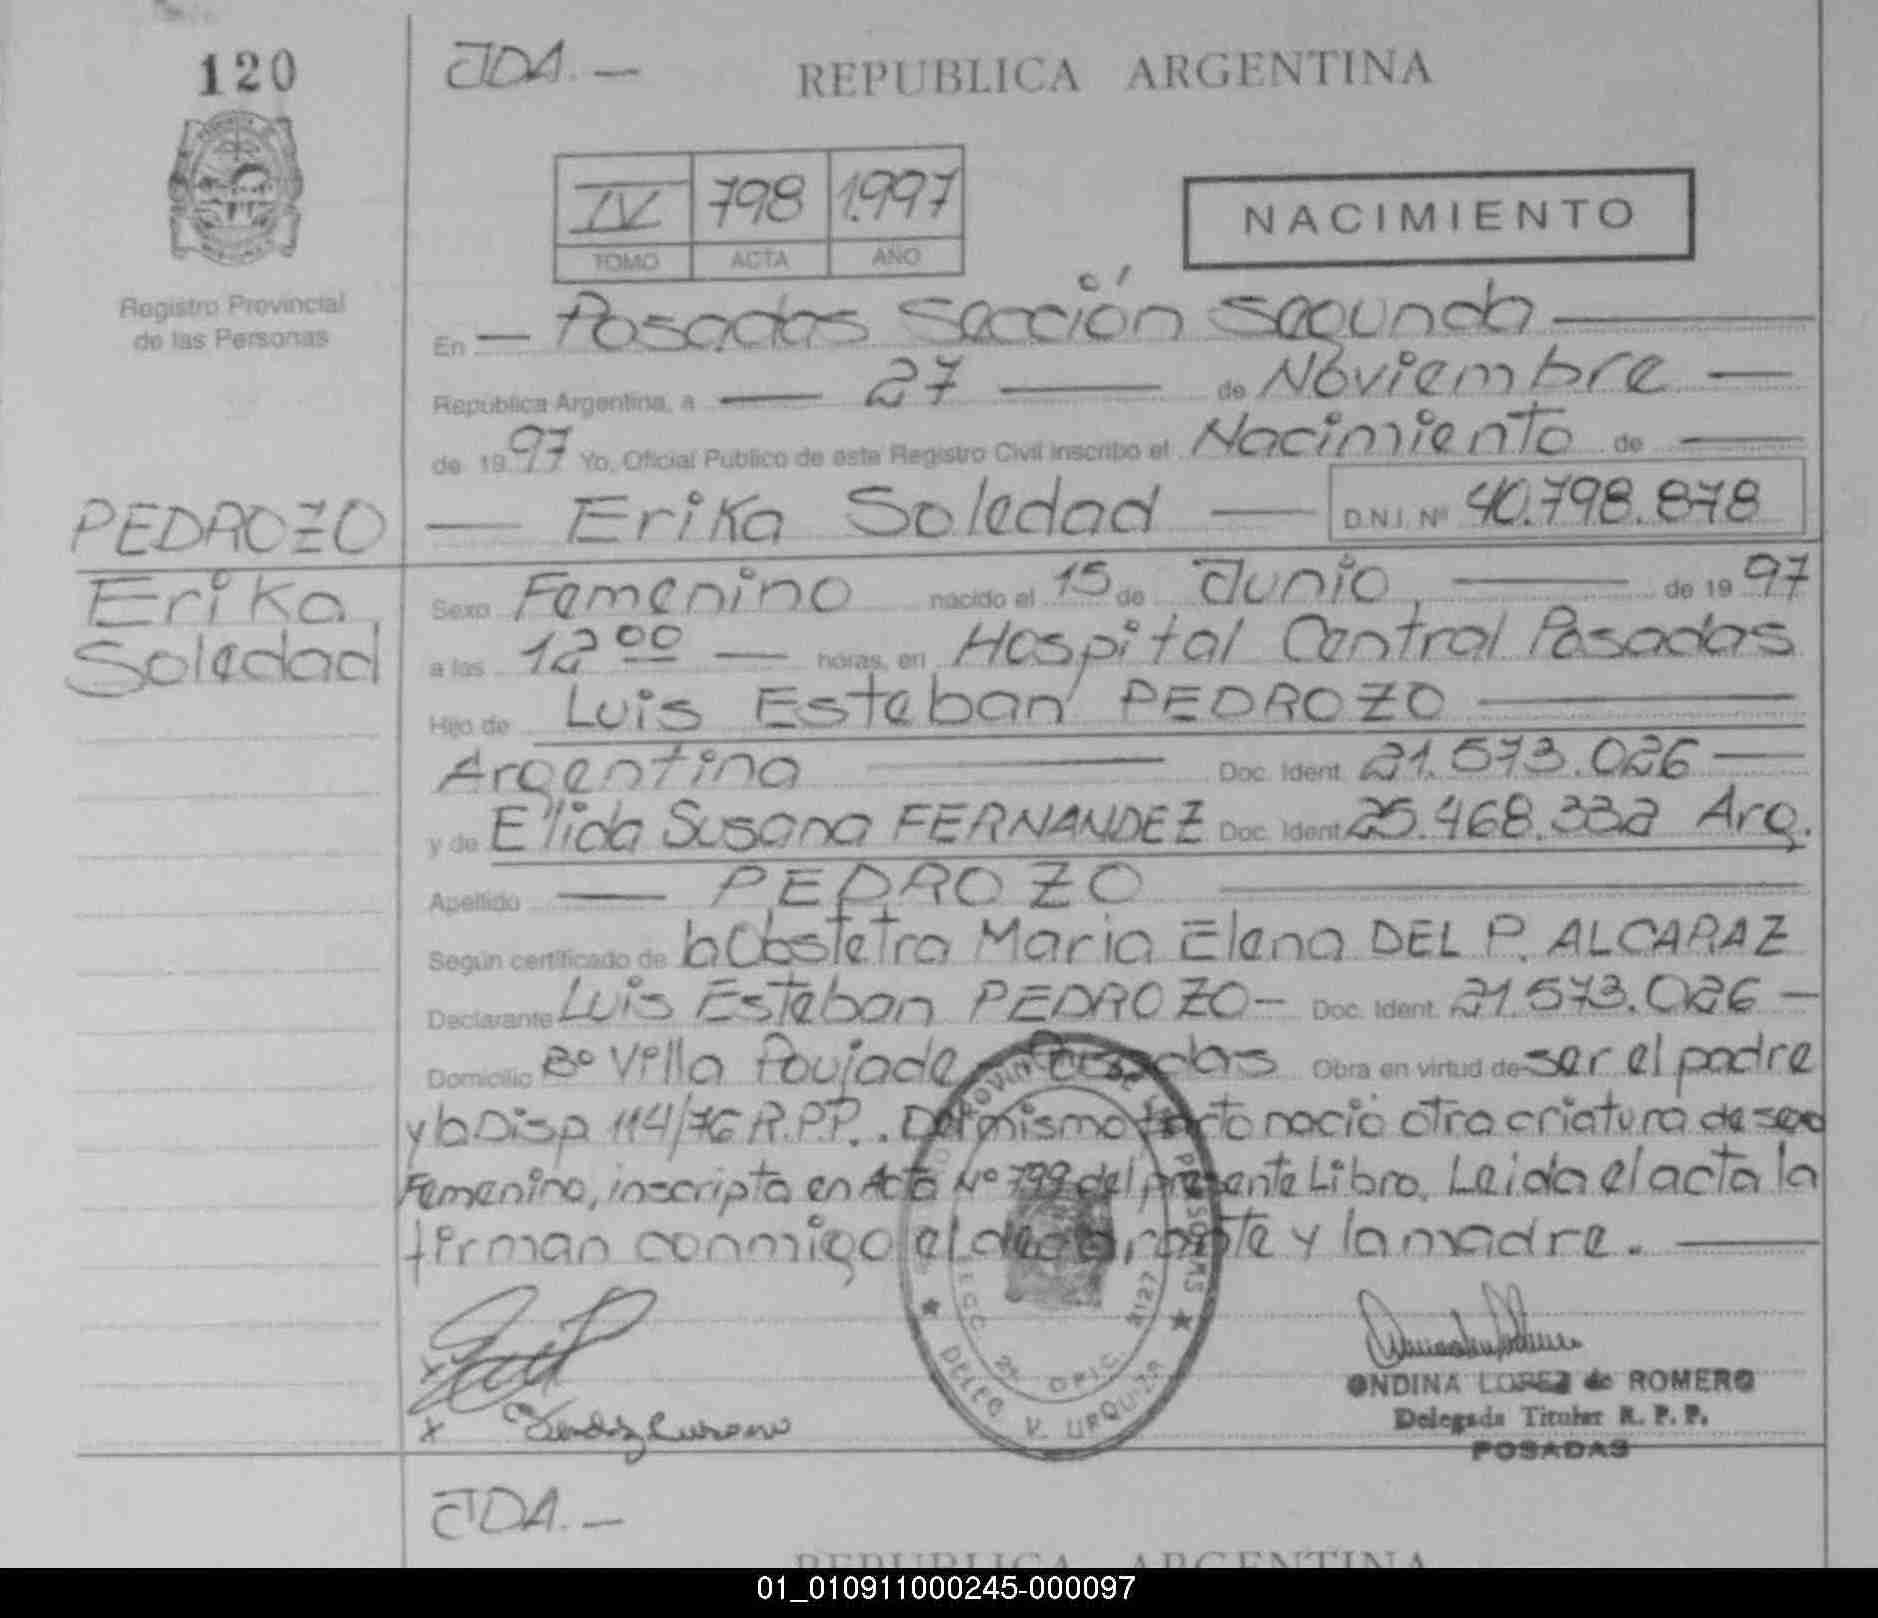 120
JDA.—
REPUBLICA ARGENTINA
IV 798 1.997
TOMO ACTA AÑO
NACIMIENTO
Registro Provincial
de las Personas
En — Posadas Sección Segunda —
Republica Argentina, a — 27 — de Noviembre —
de 1997 Yo, Oficial Publico de este Registro Civil inscribo el Nacimiento de —
PEDROZO — Erika Soledad — D.N.I. Nº 40.798.878
Erika
Soledad
Sexo Femenino nacido el 15 de Junio, — de 1997
a las 12 00 — horas, en Hospital Central Posadas
Hijo de Luis Esteban PEDROZO —
Argentina — Doc. Ident. 21.573.026 —
y de Elida Susana FERNANDEZ Doc. Ident. 25.468.332 Arg.
Apellido — PEDROZO —
Según certificado de la Obstetra Maria Elena DEL P. ALCARAZ
Declarante Luis Esteban PEDROZO — Doc. Ident. 21.573.026 —
Domicilio Bº Villa Poujade Posadas Obra en virtud de ser el padre
y la Disp. 114/76 R.P.P.. Del mismo parto nació otra criatura de sexo
Femenino, inscripta en Acta Nº 799 del presente Libro. Leida el acta la
firman conmigo el declarante y la madre. —
DELEG. V. URQUIZA
SECC. 2ª OFIC.
ONDINA LOPEZ de ROMERO
Delegada Titular R. P. P.
POSADAS
JDA.—
REPUBLICA ARGENTINA
01_010911000245-000097